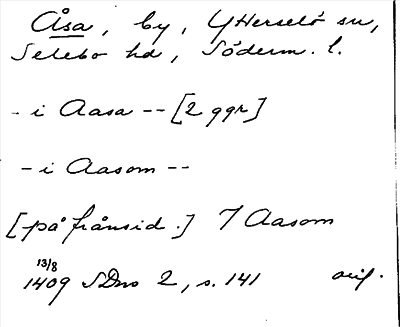 Åsa, by, Ytterselö sn,
Selebo hd, Söderm. l.
- i Aasa -- [2 ggr]
- i Aasom --
[på frånsid.] 7 Aasom
13/8
1409 SDns 2, s. 141 orig.